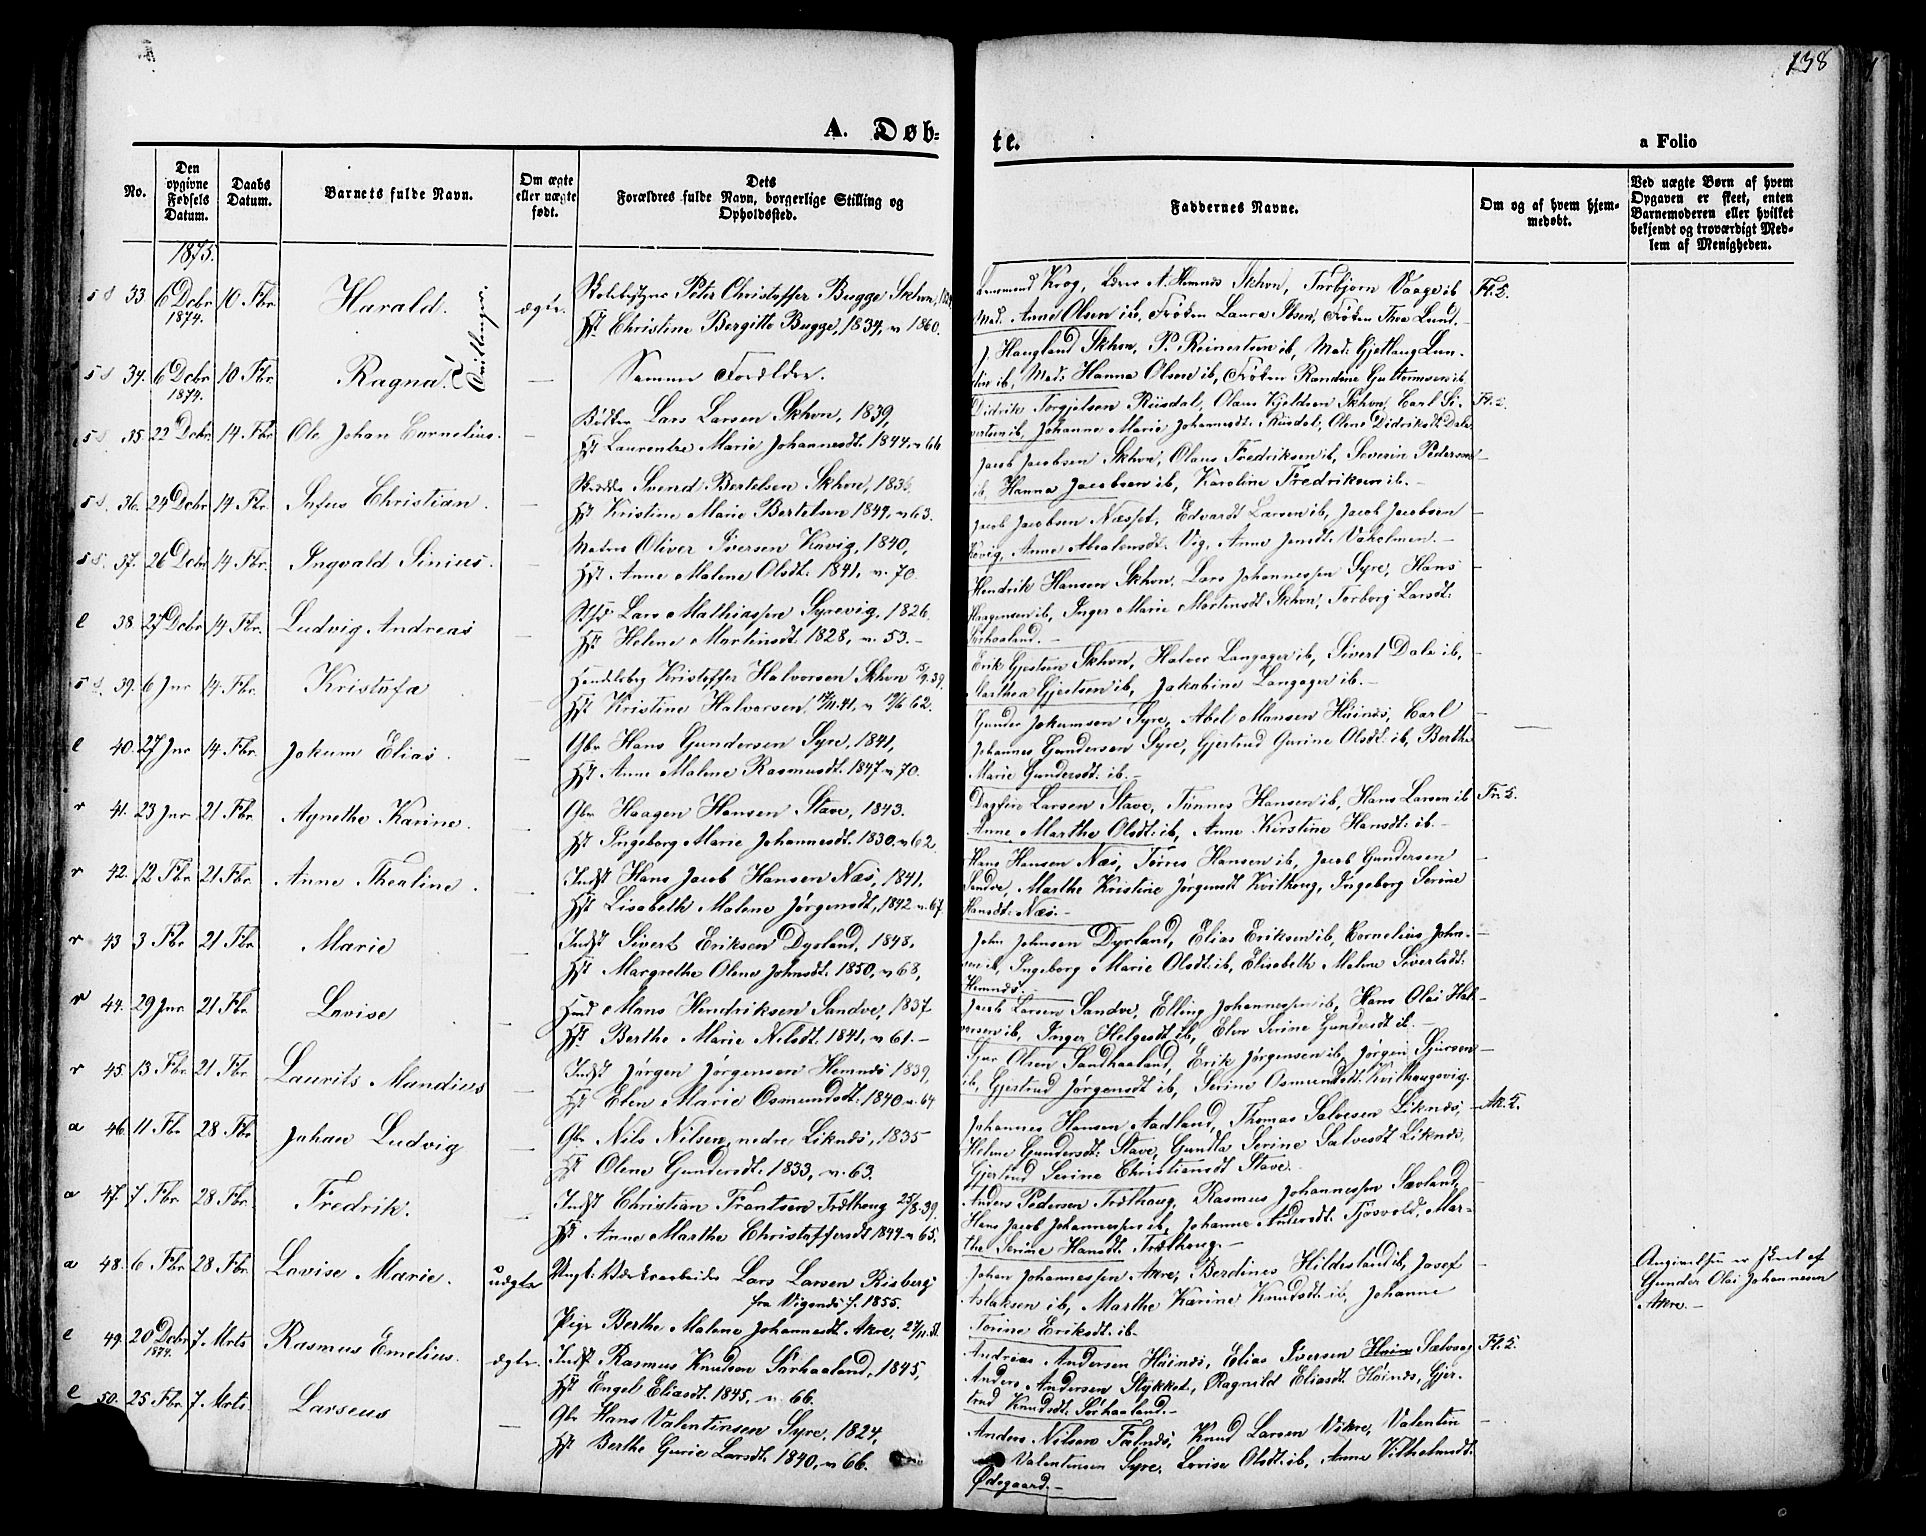 138
A. Døb-
te.
a Folio
No.
Den opgivne Fødsels Datum.
Daabs Datum.
Barnets fulde Navn.
Om ægte eller uægte født.
Dets Forældres fulde Navn, borgerlige Stilling og Opholdssted.
Faddernes Navne.
Om og af hvem hjem-
medøbt.
Ved uægte Børn af hvem
Opgaven er skeet, enten
Barnemoderen eller hvilket
bekjendt og troværdigt Med-
lem af Menigheden.
1875.
33 6 Dcbr 1874. 10 Fbr Harald. Tvillinger. ægte. Peter Christoffer Bugge Skhvn,
Hst Christine Bergitte Bugge, 1834, v 1860.
Krog, Lærer A. Hemnes Skhvn, Torbjørn Vaage ib
Mad. Anne Olsen ib, Frøken Laura Ibsen, Frøken Thea Lund.
34. 6 Dcbr 1874. 10 Fbr Ragna. — Samme Forældre.
J. Haugland Skhvn, P. Reinertsen ib, Mad: Gjetlaug Lun-
din ib, Mad: Hanna Olsen ib, Frøken Randine Guttormsen ib.
35 22 Dcbr 14 Fbr Ole Johan Cornelius. — Bødker Lars Larsen Skhvn, 1839,
Hst Laurentze Marie Johannesdt. 1844. v 66
Didrik Torgjelsen Risdal, Olaus Kjeldsen Skhvn, Carl Si-
vertsen ib, Johanne Marie Johannesdt. Risdal, Olene Didriksdt. Dale
36. 24 Dcbr 14 Fbr. Sofus Christian. — Svend Bertelsen Skhvn, 1836
Hst Kristine Marie Bertelsen 1844, v 63.
Jacob Jacobsen Skhvn, Olaus Fredriksen ib, Severin Pedersen
ib, Hanna Jacobsen ib, Karoline Fredriksen ib. —
37. 26 Dcbr 14 Fbr. Ingvald Sinius. — Oliver Iversen Kovig, 1840,
Hst Anne Malene Olsdt. 1841, v. 70.
Jacob Jacobsen Næsset, Edvardt Larsen ib, Jacob Jacobsen
Kovig, Anne Absalonsdt. Vig, Anne Jensdt. Vaholmen. —
38 27 Dcbr 14 Fbr. Ludvig Andreas — Lars Mathiassen Syrevig, 1826.
Hst Helene Martinsdt. 1828, v. 53. —
Hendrik Hansen Skhvn, Lars Johannessen Syre, Hans
Haagensen ib, Inger Marie Martensdt Skhvn, Torborg Larsdt:
Sørhaaland. —
39. 6 Jnr 14. Fbr Kristofa — Kristoffer Halvorsen Skhvn
Hst Kristine Halvorsen,
Erik Gjertsen Skhvn, Halvor Langager ib, Sivert Dale ib,
Marthea Gjertsen ib, Jakobine Langager ib. —
40. 27 Jnr 14. Fbr Jokum Elias. — Gbr Hans Gundersen Syre, 1841,
Hst Anne Malene Rasmusdt. 1847 v 70.
Gunder Jokumsen Syre, Abel Monsen Høines, Carl
Johannes Gundersen Syre, Gjertrud Gurine Olsdt. ib, Berthe
Marie Gundersdt. ib. —
41. 23 Jnr 21 Fbr. Agnethe Karine. — Gbr Haagen Hansen Stave, 1843.
Hst Ingeborg Marie Johannesdt. 1830. v 62.
Dagfin Larsen Stave, Tønnes Hansen ib, Hans Larsen ib
Anne Marthe Olsdt. ib, Anne Kirstine Hansdt. ib. —
42. 12 Fbr. 21 Fbr. Anne Thealine. — Indst Hans Jacob Hansen Næs, 1841.
Hst Lisabeth Malene Jørgensdt, 1842 v. 67.
Hans Hansen Næs, Tønes Hansen ib, Jacob Gundersen
Sandve, Marthe Kristine Jørgensdt Kvilhoug, Ingeborg Serine
Hansdt. Næs. —
43 3 Fbr 21 Fbr. Marie — Indst Sivert Eriksen Dysland, 1848.
Hst Margrethe Olene Johnsdt. 1850, v 68,
John Johnsen Dysland, Elias Eriksen ib, Cornelius John-
sen ib, Ingeborg Marie Olsdt. ib, Elisabeth Malene Sivertsdt.
Hemnes. —
44. 29 Jnr 21 Fbr. Lovise — Mons Hendriksen Sandve, 1837
Hst. Berthe Marie Nilsdt. 1841, v 61. —
Jacob Larsen Sandve, Elling Johannessen ib, Hans Olai Hal-
vorsen ib, Inger Helgesdt ib, Elen Serine Gundersdt ib. —
45. 13 Fbr. 21 Fbr. Laurits Mandius — Indst Jørgen Jørgensen Hemnes 1839,
Hst Elen Marie Osmundsdt. 1840 v. 64
Sjur Olsen Sandhaaland, Erik Jørgensen ib, Jørgen Sjursen
ib, Gjertrud Jørgensdt ib, Serine Osmundsdt. Kvilhaugsvig.
46. 11 Fbr. 28 Fbr Johan Ludvig — Gbr Nils Nilsen nedre Liknes, 1835
Hst Olene Gundersdt. 1833, v. 63.
Johannes Hansen Aadland, Thomas Salvesen Liknes,
Helene Gundersdt. Stave, Gundla Serine Salvesdt Liknes,
Gjertrud Serine Christiansdt Stave.
47. 7 Fbr. 28 Fbr. Fredrik. — Indst Christian Frantsen Trøthoug 25/8. 39.
Hst Anne Marthe Christoffersdt 1844 v 65.
Anders Pedersen Trøthoug, Rasmus Johannessen Sævland,
Hans Jacob Johannessen ib, Johanne Andersdt. Tjøsvold, Mar-
the Serine Hansdt. Trøthoug. —
48. 6 Fbr 28 Fbr. Lovise Marie. uægte Ungk: Værksarbeider Lars Larsen Risberg
fra Vigenes f. 1855.
Pige Berthe Malene Johannesdt Akre, 27/11. 51.
Johan Johannessen Akre, Berdines Hildesland ib, Josef
Aslaksen ib, Marthe Karine Knudsdt. ib, Johanne
Torine Eriksdt. ib.
Angivelsen er skeet af
Gunder Olai Johannesen
Akre. —
49. 20 Dcbr 1874. 7. Mrts Rasmus Emelius. ægte. Indst Rasmus Knudsen Sørhaaland, 1845,
Hst Engel Eliasdt. 1845, v. 66.
Andreas Andersen Høines, Elias Iversen Sælvaag
Anders Andersen Stykket, Ragnild Eliasdt. Høines, Gjer-
trud Knudsdt. Sørhaaland. —
50. 25 Fbr. 7. Mrts. Larseus — Gbr Hans Valentinsen Syre, 1824,
Hst Berthe Gurie Larsdt. 1840, v 66.
Anders Nilsen Falnes, Knud Larsen Vikre, Valentin
Valentinsen Syre, Lovise Olsdt. ib, Anne Vilhelmsdt.
Ødegaard. —